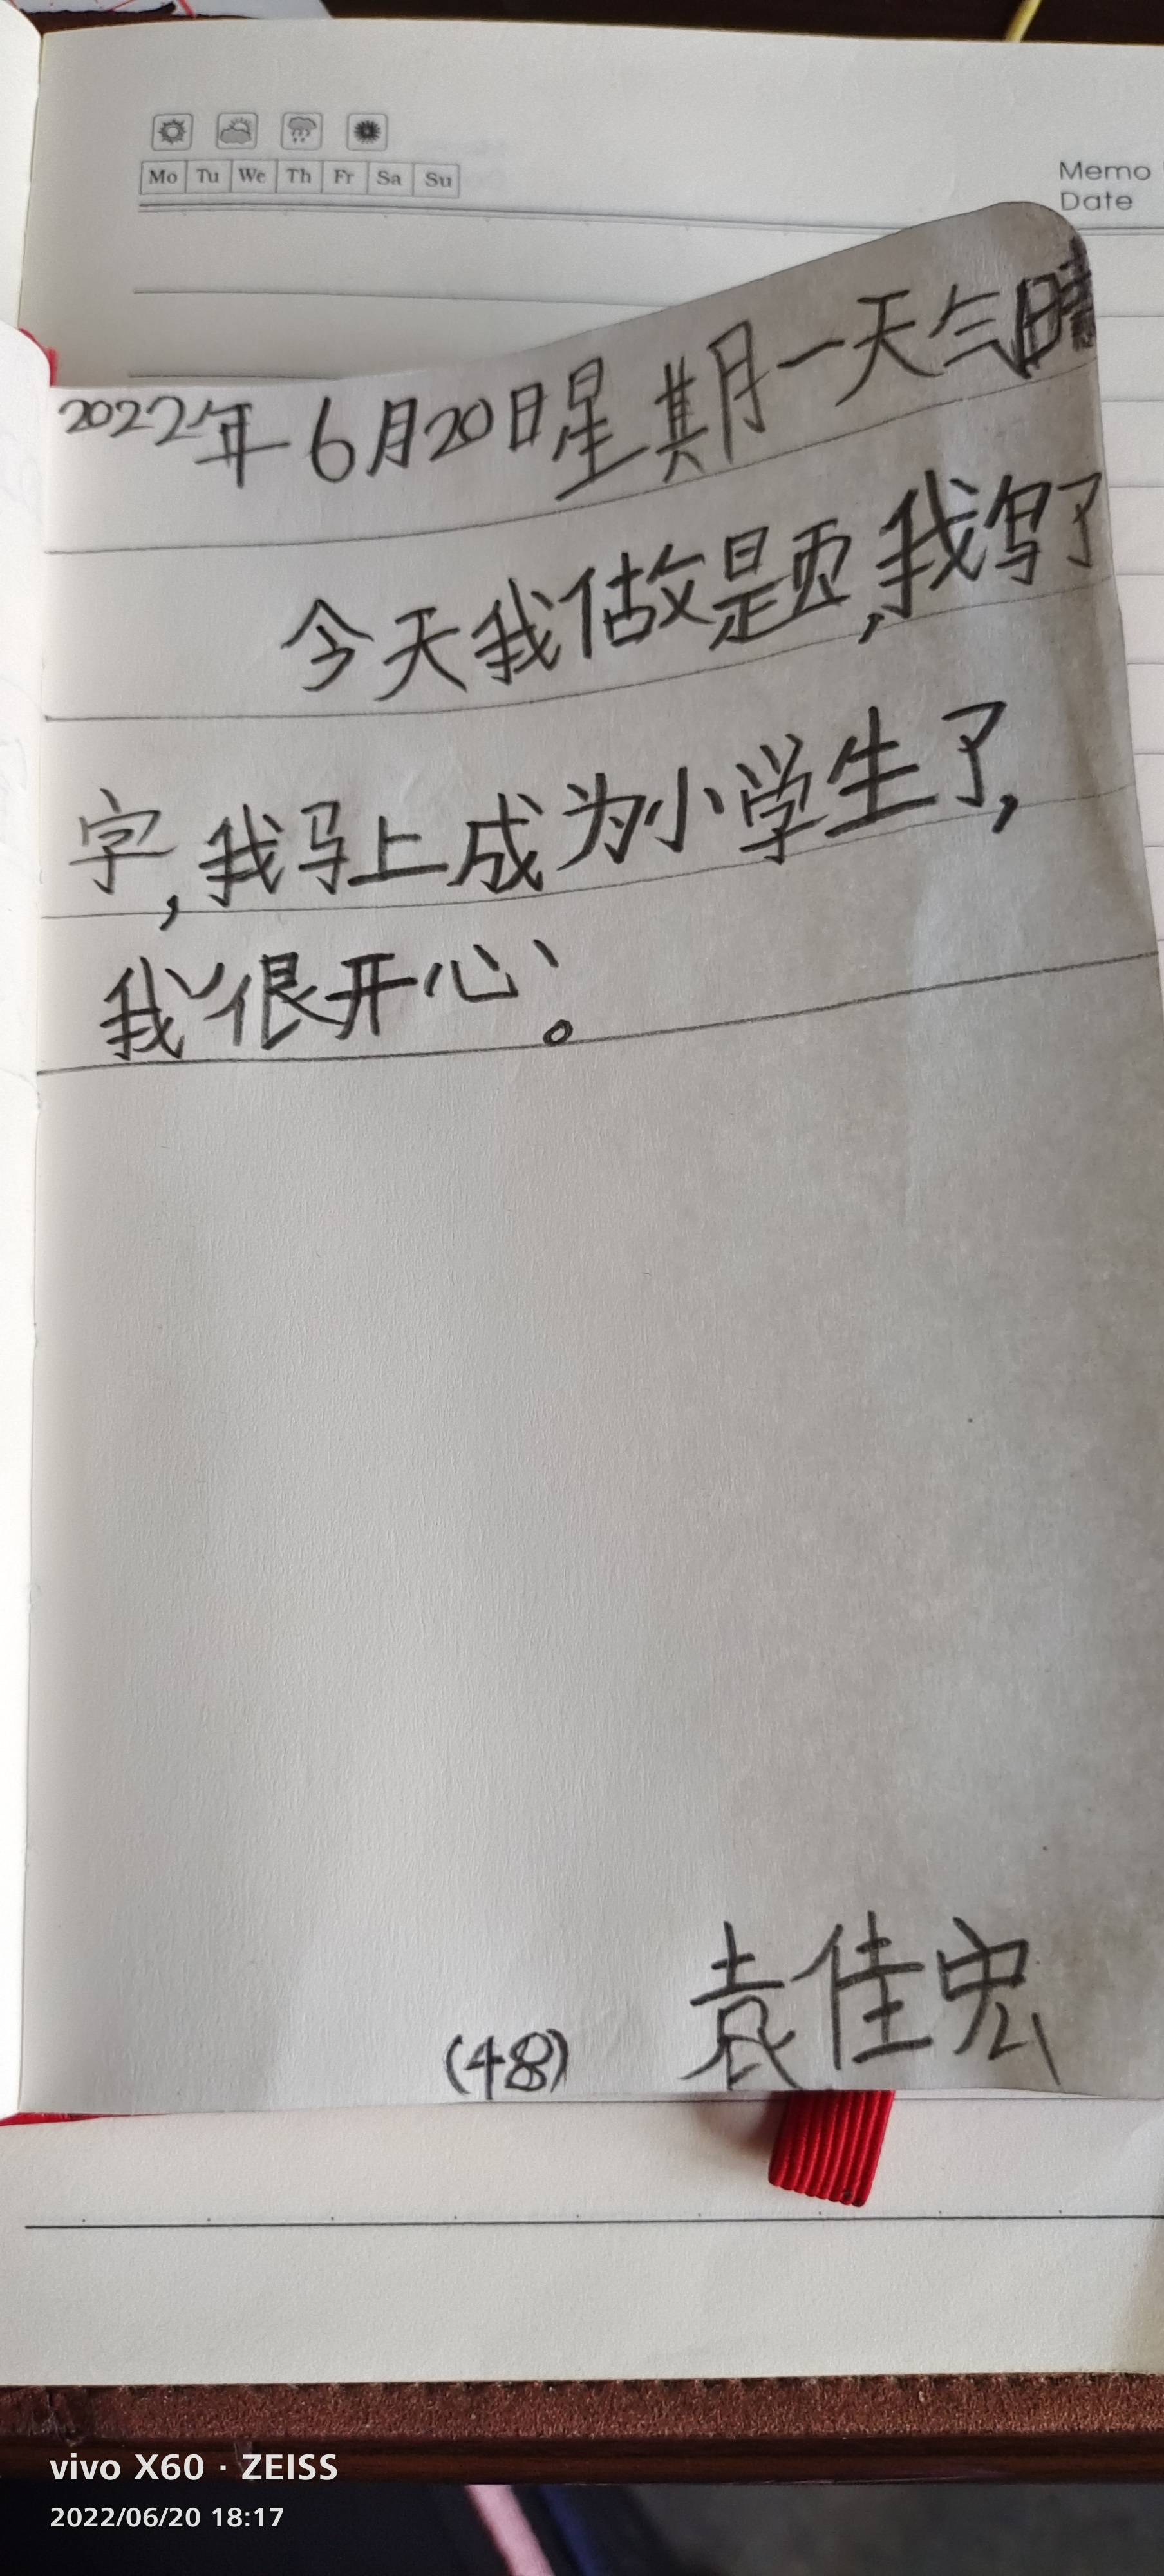 Mo Tu We Th Fr Sa Su
Memo
Date
2022年6月20日星期一天气晴
今天我做题,我写了
字,我马上成为小学生了,
我很开心。
(48) 袁佳宏
vivo X60 · ZEISS
2022/06/20 18:17